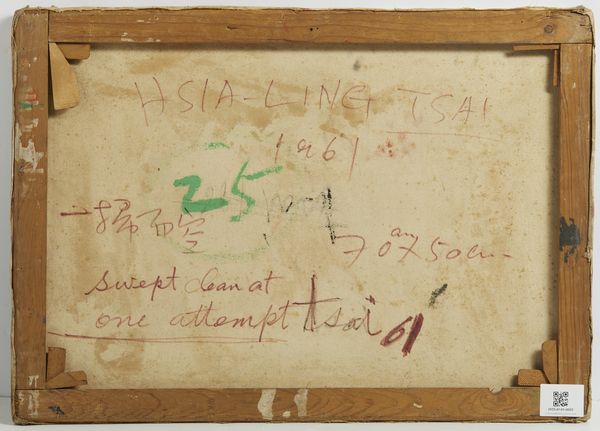 HSIA-LING TSAI
1961
25
一掃而空
70cm x 50cm
swept clean at
one attempt Tsai 61